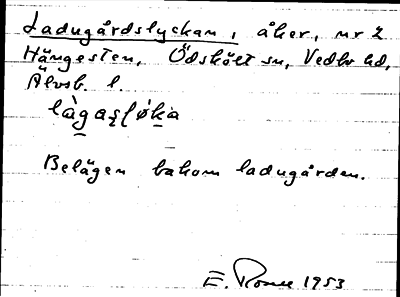 Ladugårdslyckan, åker, nr 2
Hängesten, Ödskölt sn, Vedbo hd,
Älvsb. l.
làgaslø̀ka
Belägen bakom ladugården.
E. 1953